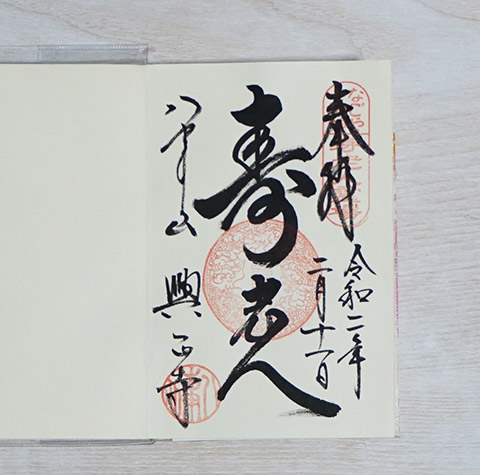 奉拝
令和二年
二月十一日
寿老人
八事山 興正寺